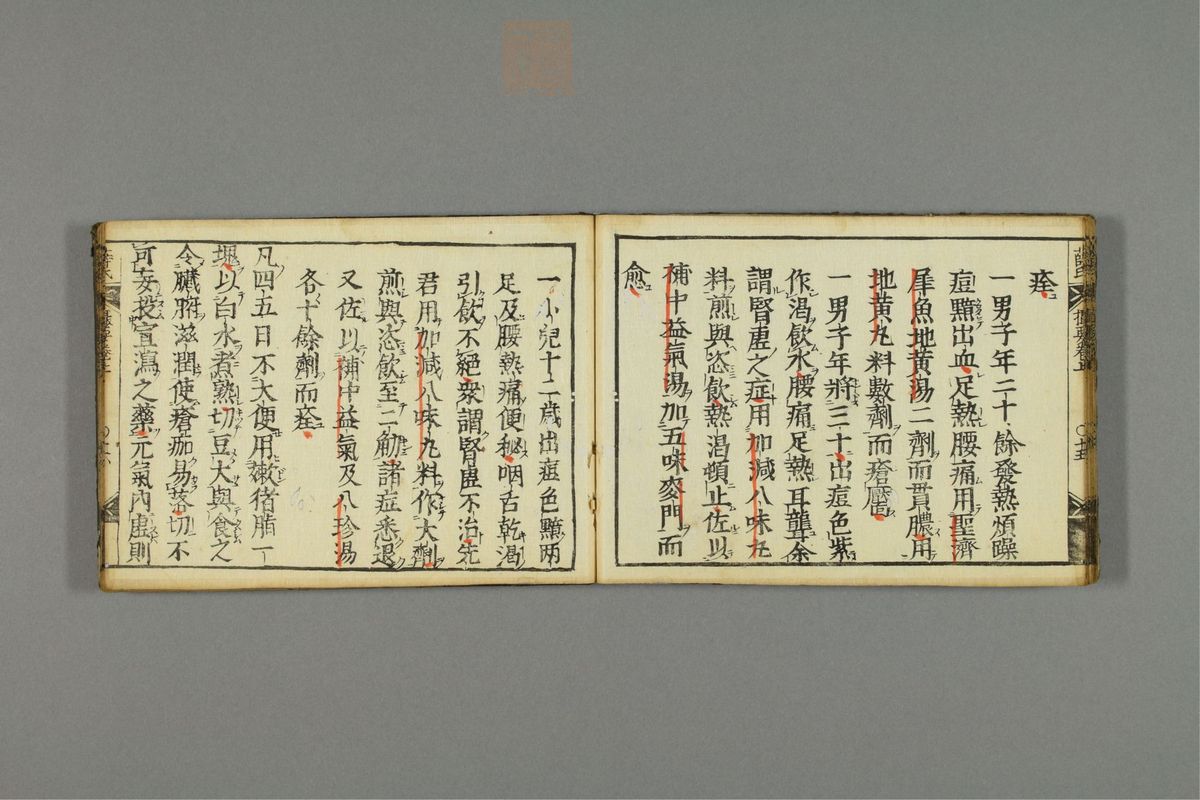 痊
一男子年二十餘發熱煩躁
痘黯出血足熱腰痛用聖濟
犀角地黃湯二劑而貫膿用
地黃丸料數劑而瘡靨
一男子年將三十出痘色紫
作渴飲水腰痛足熱耳聾余
謂腎虛之症用加減八味丸
料煎與恣飲熱渴頓止佐以
補中益氣湯加五味麥門而
愈
一小兒十二歲出痘色黯兩
足及腰熱痛便秘咽舌乾渴
引飲不絕衆謂腎虛不治先
君用加減八味丸料作大劑
煎與恣飲至二觔諸症悉退
又佐以補中益氣及八珍湯
各十餘劑而痊
凡四五日不大便用嫩猪脂一
塊以白水煮熟切豆大與食之
令臟腑滋潤使瘡痂易落切不
可妄投宣瀉之藥元氣內虛則